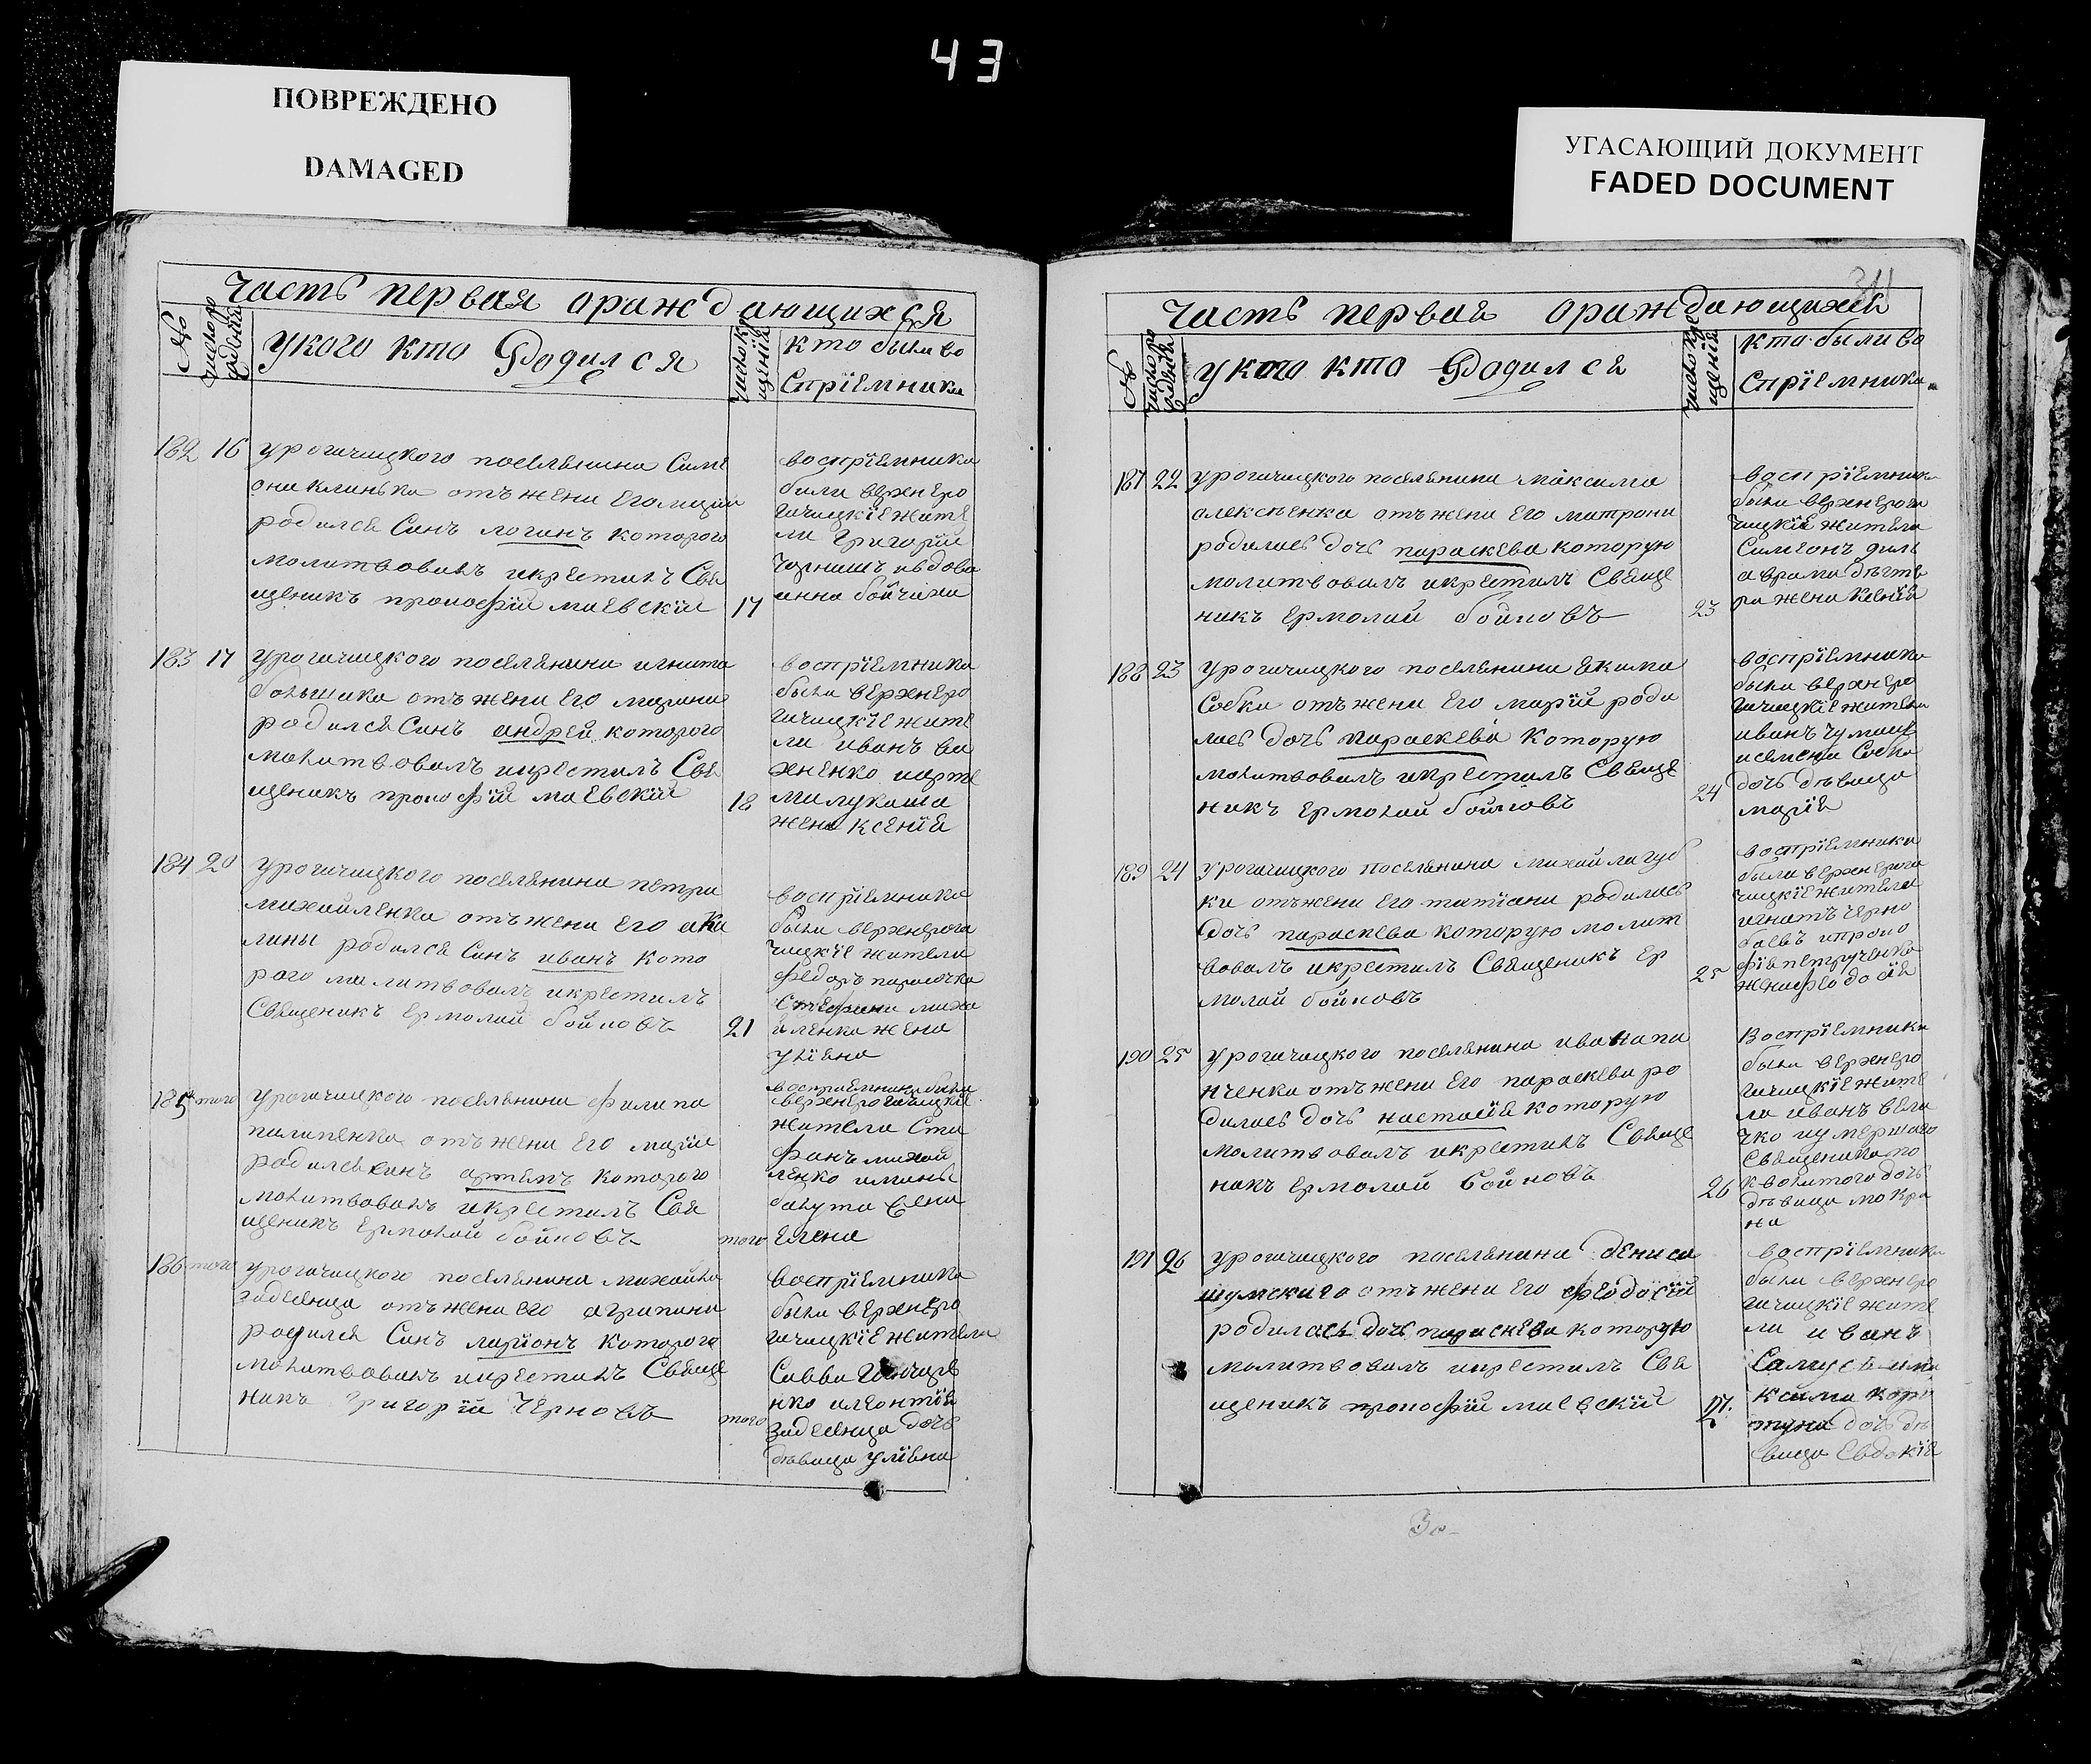 43
ПОВРЕЖДЕНО
DAMAGED
УГАСАЮЩИЙ ДОКУМЕНТ
FADED DOCUMENT
часть первая ораждающихся
№
число ро
ждения
укого кто Родился
число кр
щения
кто были во
спрїемники
182 16 урогачицкого поселянина Симе
она клинька отъ жени его марїи
родился Синъ логинъ которого
молитвовалъ икрестилъ Свя
щеникъ прокофїй маевскїй 17
воспрїемники
были верхнеро
гачицкїе жите
ли григорїй
Чернишъ ивдова
анна бойчиха
183 17 урогачицкого поселянина игната
большика отъ жени его марини
родился Синъ андрей которого
молитвовалъ икрестилъ Свя
щеникъ прокофїй маевскїй 18
воспрїемники
были верхнеро
гачицкїе жите
ли иванъ ва
хненко иарте
ма лукаша
жена ксенїя
184 20 урогачицкого поселянина петра
михайленка отъ жени его аки
лины родился Синъ иванъ кото
рого малитвовалъ икрестилъ
Священикъ Ермолай бойновъ 21
воспрїемники
были верхнерога
чицкїе жители
федоръ
Стефана миха
йленка жена
улїяна
185 того урогачицкого поселянина филипа
пилипенка отъ жени его марїи
родился синъ артемъ которого
молитвовалъ икрестилъ Свя
щеникъ Ермолай бойновъ того
воспрїемники были
верхнерогачицкїе
жители Сте
фанъ михай
ленко
жена
Елена
186 того урогачицкого поселянина михайла
задесенца отъ жени его агрипини
родился Синъ ларїонъ которого
молитвовалъ икрестилъ Свяще
никъ григорїй Черновъ того
воспрїемники
были верхнеро
гачицкїе жители
Савва Гончаре
нко илеонтїя
задесенца дочь
дѣвица улїяна
34
часть первая ораждающихся
№
число ро
ждения
укого кто Родился
число кре
щения
кто были во
спрїемники
187 22 урогачицкого поселянина максима
алексѣенка отъ жени его матрони
родилась дочь параскева которую
молитвовалъ икрестилъ Свяще
никъ Ермолай бойновъ 23
воспрїемники
были верхнерога
чицкїя жители
Симеонъ
жена Ксенїя
188 23 урогачицкого поселянина екима
Собка отъ жени его марїи роди
лась дочь параскева которую
молитвовалъ икрестилъ Свяще
никъ Ермолай бойновъ 24
воспрїемники
были верхнеро
гачицкїе жители
иванъ чумаиъ
исемена Собка
дочь дѣвица
марїя
189 24 урогачицкого поселянина михайла губ
ки отъ жени его татїани родилась
дочь параскева которую молит
вовалъ икрестилъ Священикъ Ер
молай бойновъ 25
воспрїемники
были верхнерога
чицкїе жители
игнатъ черно
баевъ ипроко
фїя петрученка
жена феодосїя
190 25 урогачицкого поселянина ивана па
нченка отъ жени его параскеви ро
дилась дочь настасїя которую
молитвовалъ икрестилъ Свяще
никъ Ермолай бойновъ 26
Воспрїемники
были верхнеро
гачицкїе жите
ли иванъ вели
чко иумершаго
Священика по
кволитого дочь
дѣвица мокри
на
191 26 урогачицкого поселянина дениса
шумского отъ жени его феодосїи
родилась дочь параскева которую
молитвовалъ икрестилъ Свя
щеникъ прокофїй маевскїй 27
воспрїемники
были верхнеро
гачицкїе жите
ли иванъ
Самусь има
ксима кор
туна дочь дѣ
вица Евдокїя